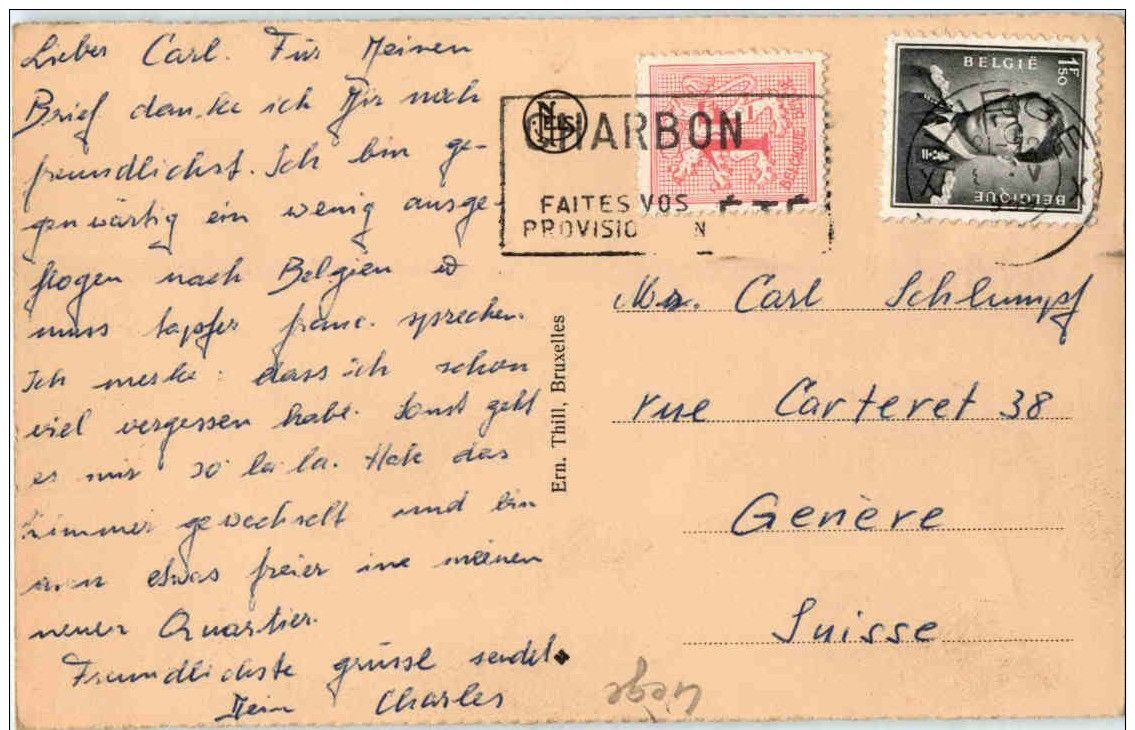 Lieber Carl. Für Deinen
Brief danke ich Dir noch
freundlichst. Ich bin ge-
genwärtig ein wenig ausge-
flogen nach Belgien
muss tapfer franc. sprechen.
Ich merke: dass ich schon
viel vergessen habe. Sonst geht
es mir so la la. Habe das
Zimmer gewechselt und bin
nun etwas freier in meinen
neuen Quartier.
Freundlichste grüsse sendet
Dein Charles
Ern. Thill, Bruxelles
NELS
CHARBON
FAITES VOS
PROVISIO N
ÉTÉ
BELGIQUE
1F50
BELGIË
BELGIQUE
LIEGE
X X
Mr. Carl Schlumpf
rue Carteret 38
Genève
Suisse
Liege